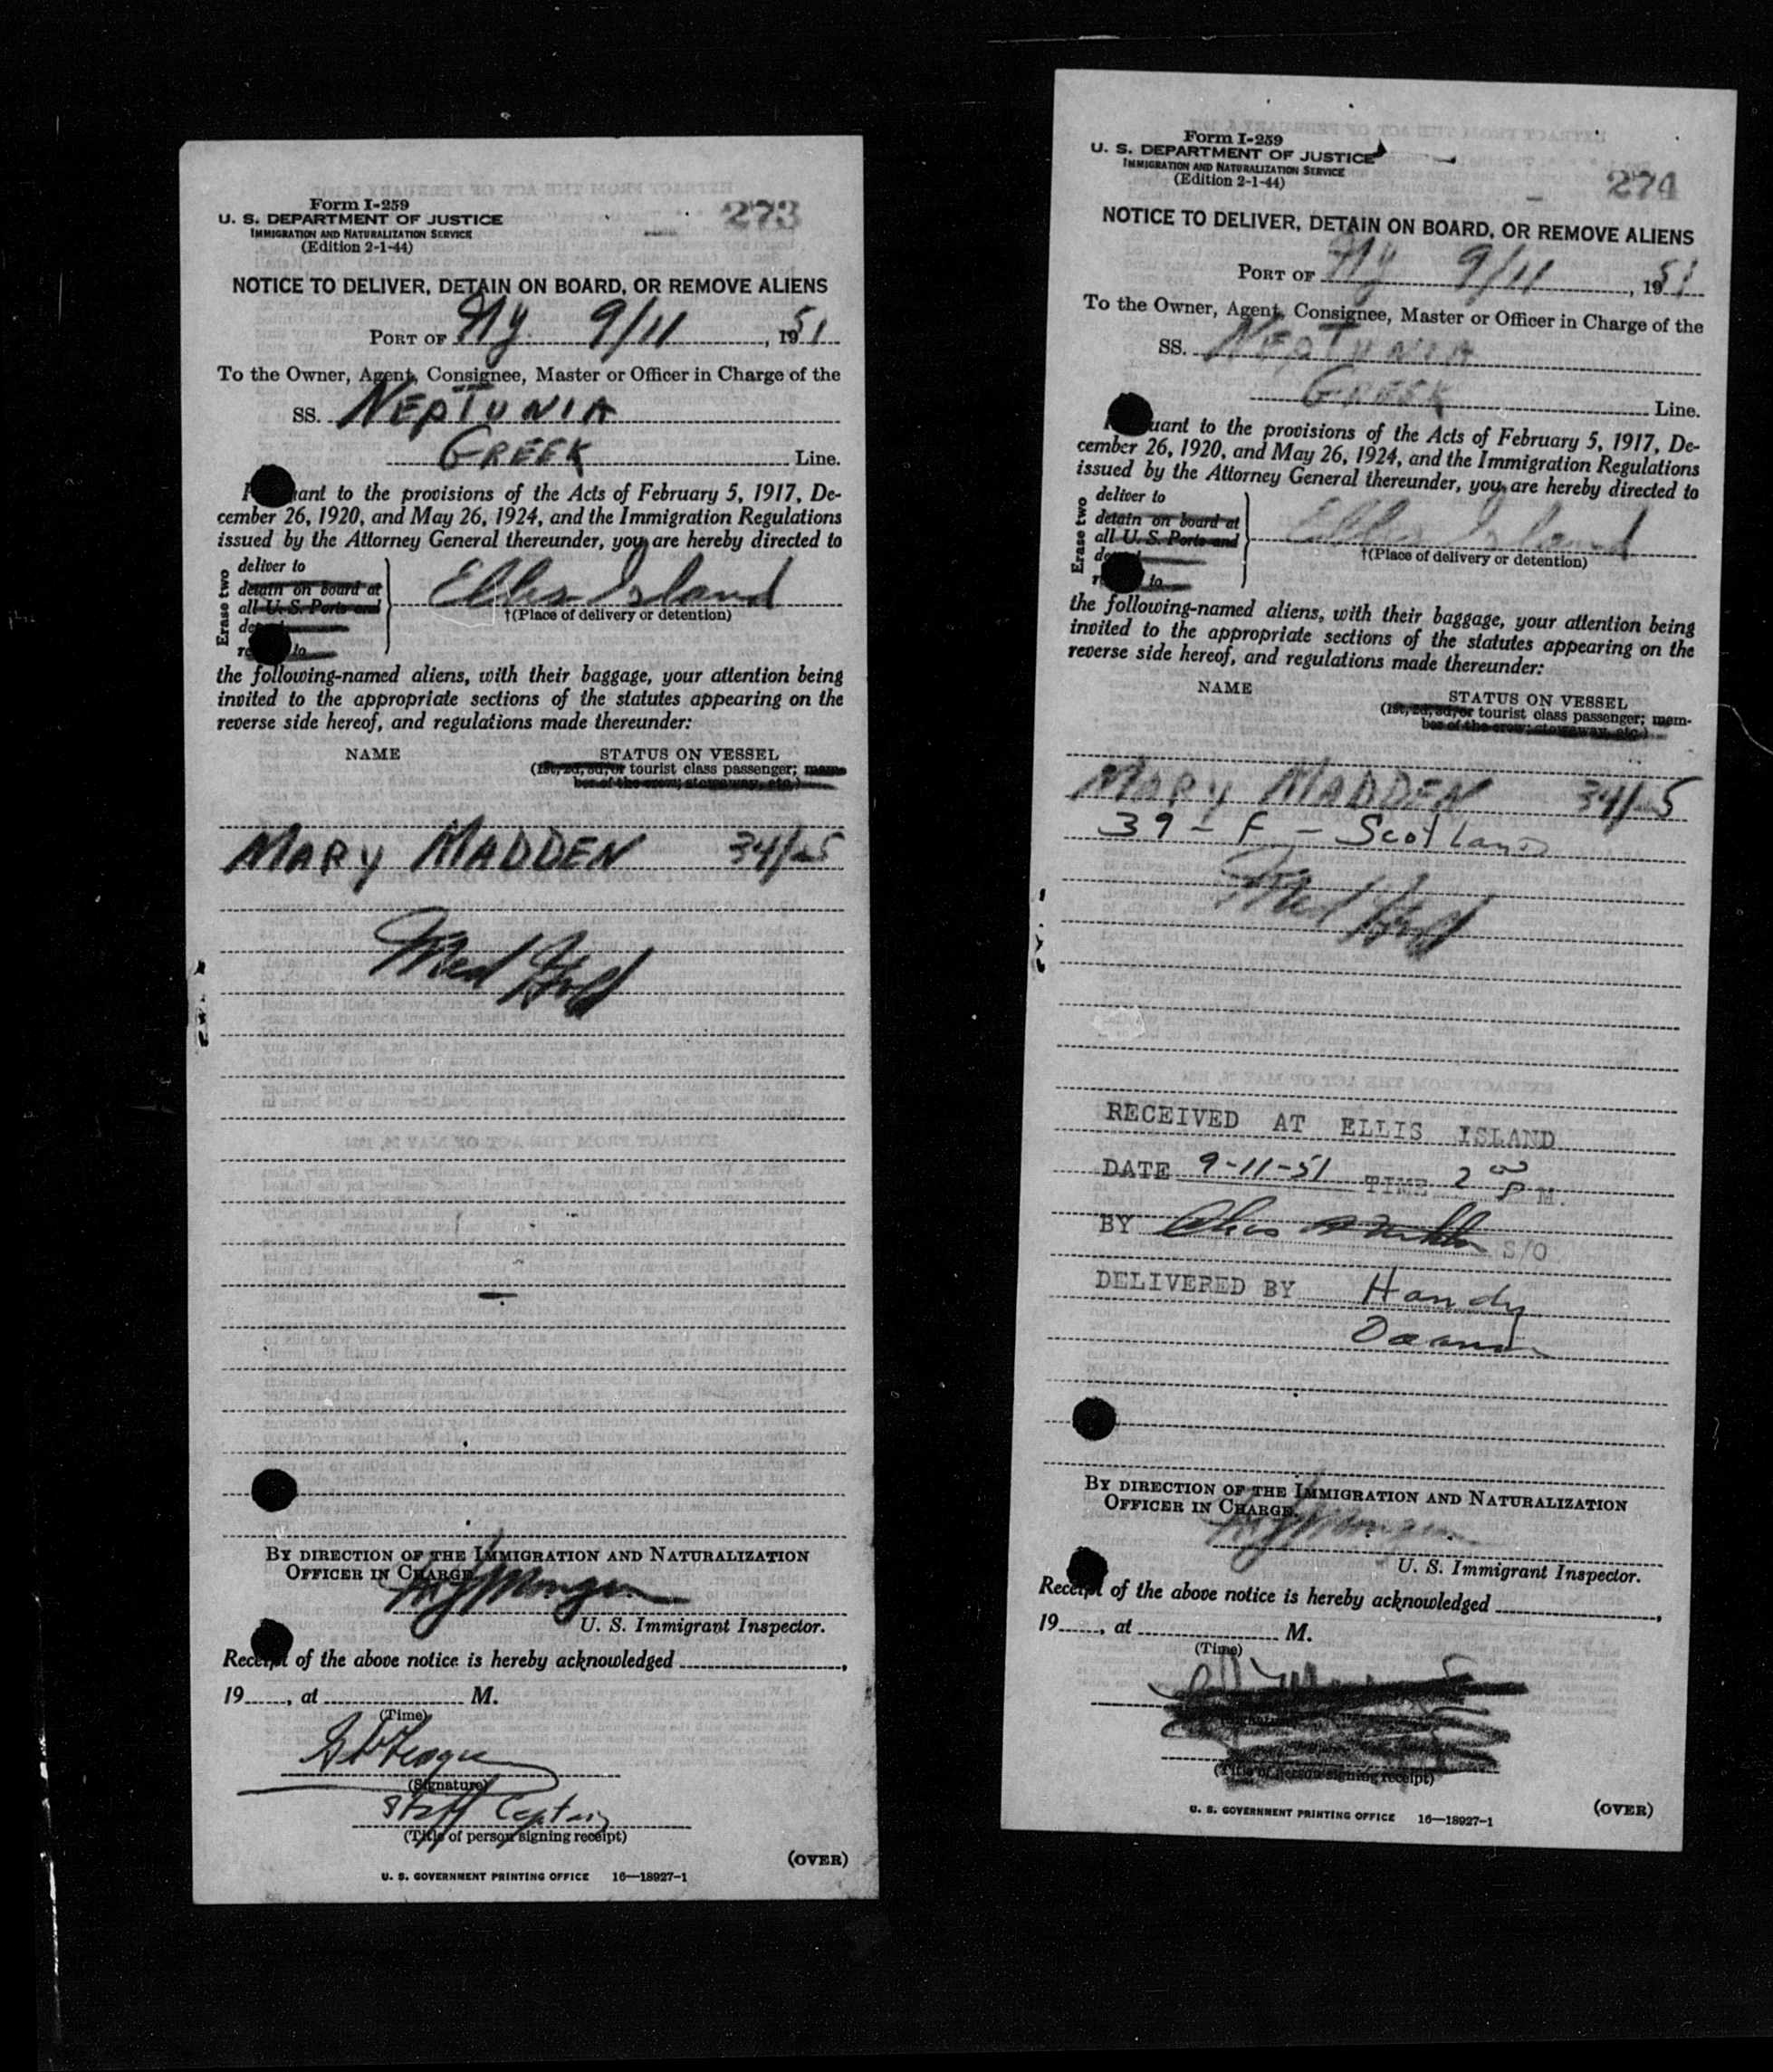 Form I-259
U. S. DEPARTMENT OF JUSTICE
IMMIGRATION AND NATURALIZATION SERVICE
(Edition 2-1-44)
273
NOTICE TO DELIVER, DETAIN ON BOARD, OR REMOVE ALIENS
PORT OF NY 9/11, 1951
To the Owner, Agent, Consignee, Master or Officer in Charge of the
SS. NEPTUNIA
GREEK Line.
uant to the provisions of the Acts of February 5, 1917, De-
cember 26, 1920, and May 26, 1924, and the Immigration Regulations
issued by the Attorney General thereunder, you are hereby directed to
Erase two
deliver to
detain on board at
all U. S. Ports and
to
Ellis Island
†(Place of delivery or detention)
the following-named aliens, with their baggage, your attention being
invited to the appropriate sections of the statutes appearing on the
reverse side hereof, and regulations made thereunder:
NAME STATUS ON VESSEL
(1st, 2d, 3d, or tourist class passenger; mem-
ber of the crew; stowaway, etc.)
MARY MADDEN 34/-5
Med Hosp
BY DIRECTION OF THE IMMIGRATION AND NATURALIZATION
OFFICER IN CHARGE
U. S. Immigrant Inspector.
Receipt of the above notice is hereby acknowledged
19, at M.
(Time)
(Signature)
Staff Captain
(Title of person signing receipt)
(OVER)
U. S. GOVERNMENT PRINTING OFFICE 16—18927-1
Form I-259
U. S. DEPARTMENT OF JUSTICE
IMMIGRATION AND NATURALIZATION SERVICE
(Edition 2-1-44)
274
NOTICE TO DELIVER, DETAIN ON BOARD, OR REMOVE ALIENS
PORT OF NY 9/11, 1951
To the Owner, Agent, Consignee, Master or Officer in Charge of the
SS. NEPTUNIA
GREEK Line.
uant to the provisions of the Acts of February 5, 1917, De-
cember 26, 1920, and May 26, 1924, and the Immigration Regulations
issued by the Attorney General thereunder, you are hereby directed to
Erase two
deliver to
detain on board at
all U. S. Ports and
to
Ellis Island
†(Place of delivery or detention)
the following-named aliens, with their baggage, your attention being
invited to the appropriate sections of the statutes appearing on the
reverse side hereof, and regulations made thereunder:
NAME STATUS ON VESSEL
(1st, 2d, 3d, or tourist class passenger; mem-
ber of the crew; stowaway, etc.)
MARY MADDEN 34/-5
39 - F - Scotland
Med Hosp
RECEIVED AT ELLIS ISLAND
DATE 9-11-51 TIME 2 00 P M.
BY S/O
DELIVERED BY Handy
BY DIRECTION OF THE IMMIGRATION AND NATURALIZATION
OFFICER IN CHARGE.
U. S. Immigrant Inspector.
Receipt of the above notice is hereby acknowledged
19, at M.
(Time)
(Title of person signing receipt)
(OVER)
U. S. GOVERNMENT PRINTING OFFICE 16—18927-1